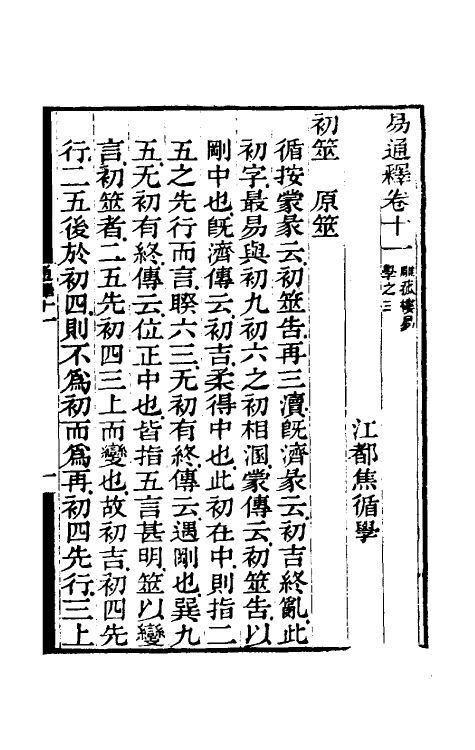 易通釋卷十一
雕菰樓易
學之三
江都焦循學
初筮　原筮
循按蒙彖云初筮告再三瀆旣濟彖云初吉終亂此
初字最易與初九初六之初相溷蒙傳云初筮告以
剛中也旣濟傳云初吉柔得中也此初在中則指二
五之先行而言睽六三无初有終傳云遇剛也巽九
五无初有終傳云位正中也皆指五言甚明筮以變
言初筮者二五先初四三上而變也故初吉初四先
行二五後於初四則不爲初而爲再初四先行三上
通釋十一
一